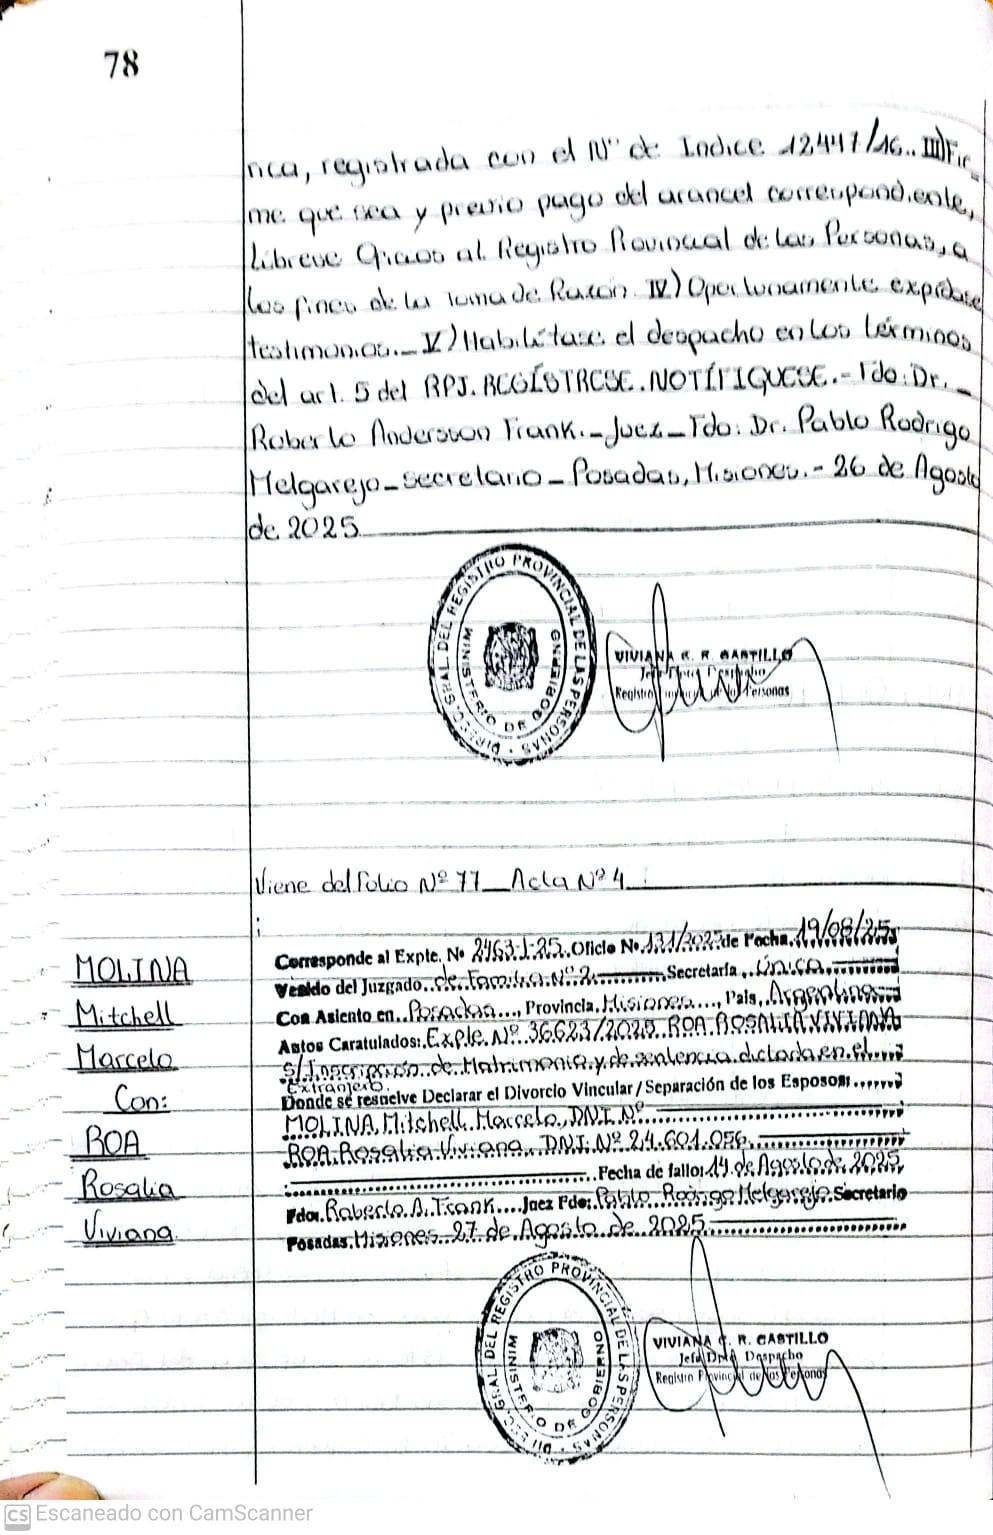 78
nca, registrada con el Nº de Indice 12447/16.. III) Fir_
me que sea y previo pago del arancel correspondiente,
Librese Oficios al Registro Provincial de las Personas, a
los fines de la toma de Razón. IV) Oportunamente expídase
testimonios._ V) Habilítase el despacho en los términos
del art. 5 del RPJ. REGÍSTRESE. NOTIFÍQUESE.- Fdo: Dr._
Roberto Andersson Frank._Juez_Fdo: Dr. Pablo Rodrigo
Melgarejo_Secretario_Posadas, Misiones.- 26 de Agosto
de 2025.
DIREC. GRAL. DEL REGISTRO PROVINCIAL DE LAS PERSONAS
MINISTERIO DE GOBIERNO
VIVIANA R. CASTILLO
Registro Personas
Viene del Folio Nº 77_ Acta Nº 4
MOLINA
Mitchell
Marcelo
Con:
ROA
Rosalia
Viviana
Corresponde al Expte. Nº 2463-J-25. Oficio No. 131/2025 de Fecha. 19/08/25
Venido del Juzgado.. de Familia Nº 2 Secretaría.. Única
Con Asiento en.. Posadas..., Provincia. Misiones..., País.. Argentina
Autos Caratulados: Expte. Nº 36623/2025 ROA ROSALIA VIVIANA
s/ Inscripción de Matrimonio y de sentencia dictada en el
Extranjero.
Donde se resuelve Declarar el Divorcio Vincular/Separación de los Esposos:
MOLINA Mitchell Marcelo, DNI Nº
ROA Rosalia Viviana, DNI: Nº 24.601.056
Fecha de fallo: 14 de Agosto de 2025
Fdo. Roberto A. Frank.... Juez Fdo: Pablo Rodrigo Melgarejo. Secretario
Posadas. Misiones 27 de Agosto de 2025.
DIREC. GRAL. DEL REGISTRO PROVINCIAL DE LAS PERSONAS
MINISTERIO DE GOBIERNO
VIVIANA R. CASTILLO
Jefa Dpto Despacho
Registro Provincial de las Personas
CS Escaneado con CamScanner